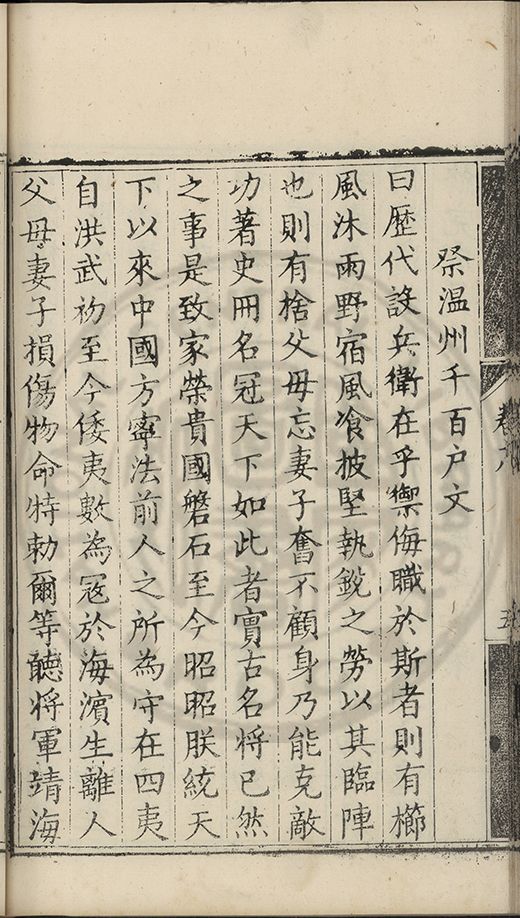 卷六
五
祭温州千百户文
曰歷代設兵衛在乎禦侮職於斯者則有櫛
風沐雨野宿風飡披堅執銳之勞以其臨陣
也則有捨父母忘妻子奮不顧身乃能克敵
功著史冊名冠天下如此者實古名將已然
之事是致家榮貴國磐石至今昭昭朕統天
下以來中國方寧法前人之所為守在四夷
自洪武初至今倭夷數為冦於海濱生離人
父母妻子損傷物命特勅爾等聽將軍靖海